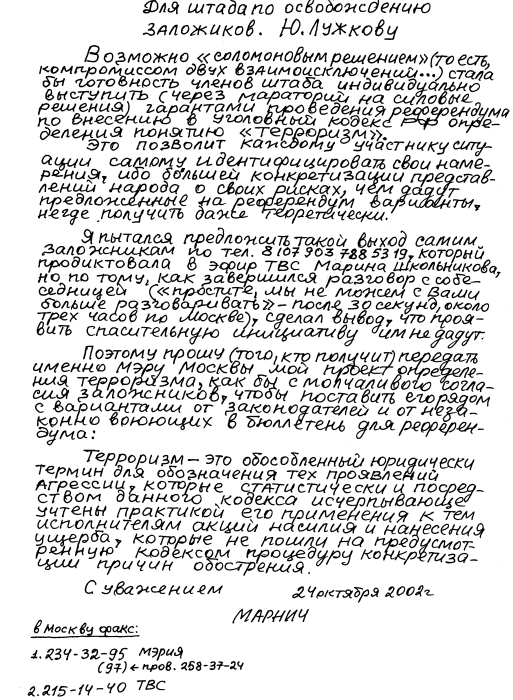 Для штаба по освобождению
заложиков. Ю. Лужкову
Возможно «соломоновым решением» (то есть,
компромиссом двух взаимоисключений...) стала
бы готовность членов штаба индивидуально
выступить (через мараторий на силовые
решения) гарантами проведения референдума
по внесению в уголовный кодекс РФ опре-
деления понятию «терроризм».
Это позволит каждому участнику ситу-
ации самому идентифицировать свои наме-
рения, ибо большей конкретизации представ-
лений народа о своих рисках, чем дадут
предложенные на референдум варианты,
негде получить даже теоретически.
Я пытался предложить такой выход самим
заложникам по тел. 8 107 903 788 53 19, который
продиктовала в эфир ТВС Марина Школьникова,
но по тому, как завершился разговор с собе-
седницей («простите, мы не можем с Вами
больше разговаривать» - после 30 секунд, около
трех часов по Москве), сделал вывод, что проя-
вить спасительную инициативу им не дадут.
Поэтому прошу (того, кто получит) передать
именно мэру Москвы мой проект определе-
ния терроризма, как бы с молчаливого согла-
сия заложников, чтобы поставить его рядом
с вариантами от законодателей и от неза-
конно воюющих в бюллетень для референ-
дума:
Терроризм – это обособленный юридически
термин для обозначения тех проявлений
агрессии, которые статистически и посред-
ством данного кодекса исчерпывающе
учтены практикой его применения к тем
исполнителям акций насилия и нанесения
ущерба, которые не пошли на предусмот-
ренную кодексом процедуру конкретиза-
ции причин обострения.
С уважением 24 октября 2002г
МАРНИЧ
в Москву факс:
1. 234-32-95 мэрия
(97) ← пров. 258-37-24
2. 215-14-40 ТВС